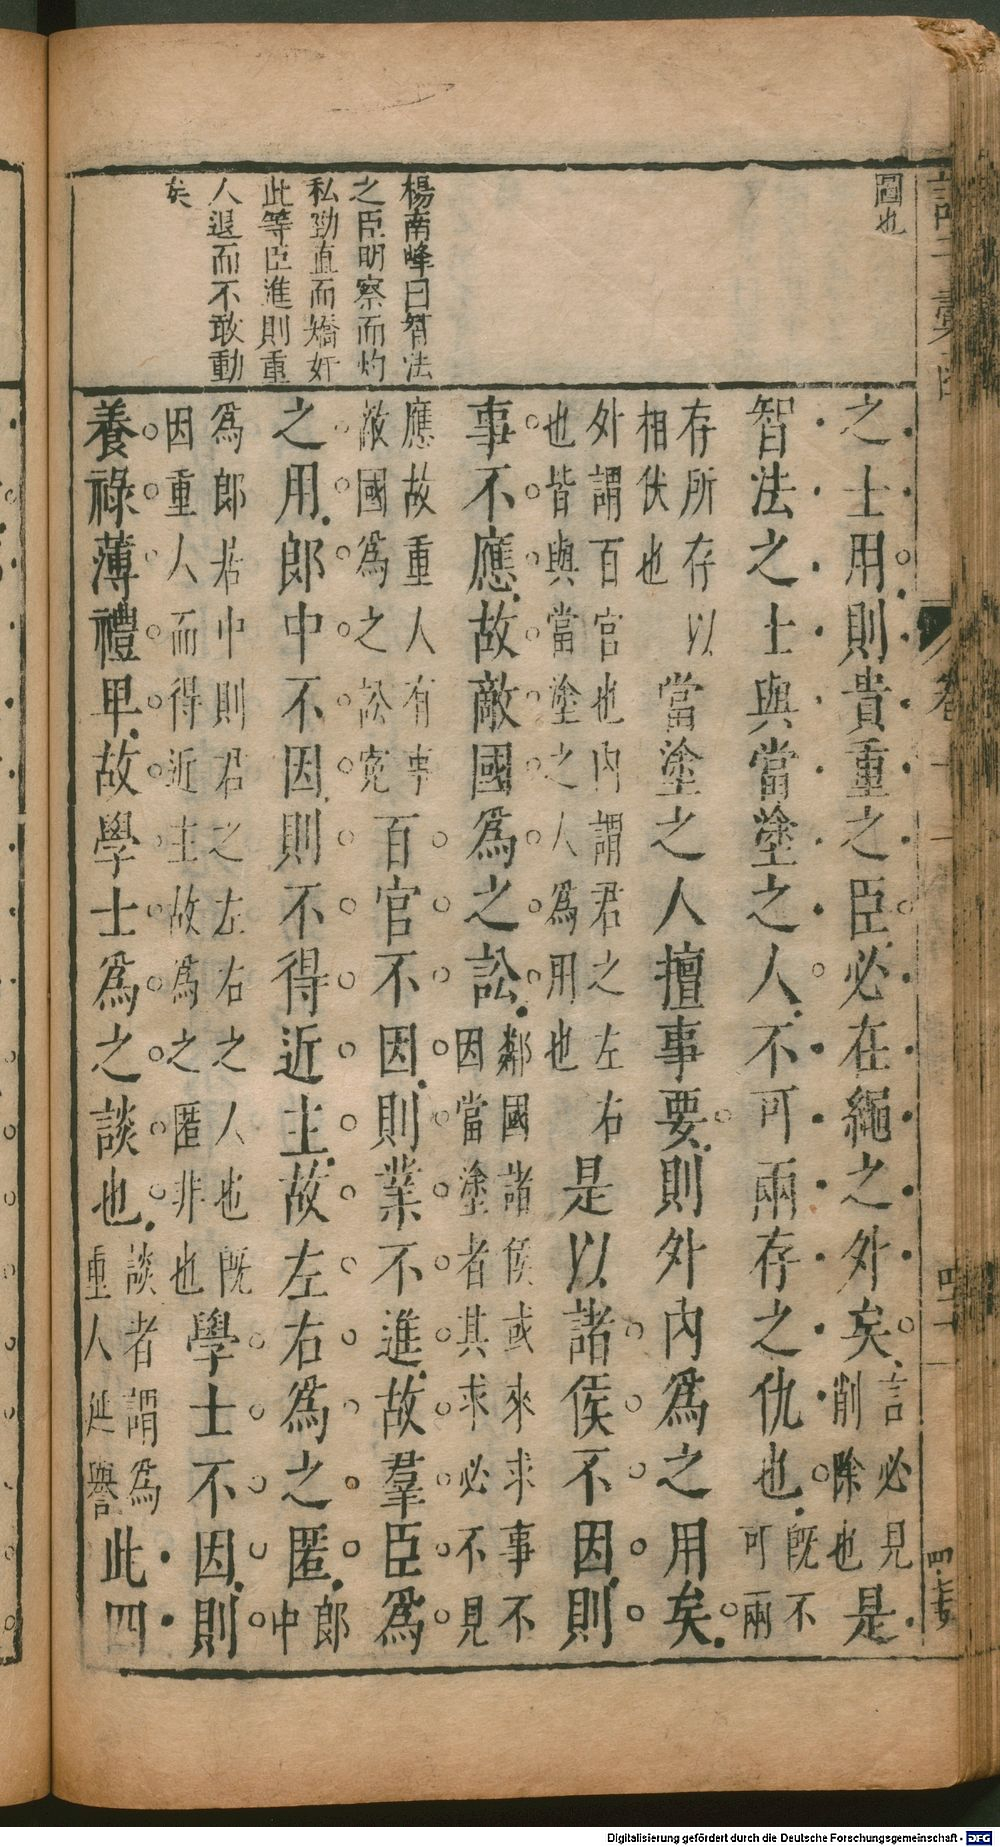 圖也
楊南峰曰智法
之臣明察而灼
私勁直而矯奸
此等臣進則重
人退而不敢動
矣
之士用則貴重之臣必在繩之外矣言必見
削除也是
智法之士與當塗之人不可兩存之仇也既不
可兩
存所存以
相仗也當塗之人擅事要則外内爲之用矣
外謂百官也内謂君之左右
也皆與當塗之人爲用也是以諸侯不因則
事不應故敵國爲之訟鄰國諸侯或來求事不
因當塗者其求必不見
應故重人有事
敵國爲之訟寃百官不因則業不進故羣臣爲
之用郎中不因則不得近主故左右爲之匿郎
中
爲郎居中則君之左右之人也既
因重人而得近主故爲之匿非也學士不因則
養祿薄禮卑故學士爲之談也談者謂爲
重人延譽此四
Digitalisierung gefördert durch die Deutsche Forschungsgemeinschaft - DFG